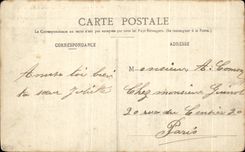 CARTE POSTALE
La Correspondance au recto n'est pas acceptée par tous les Pays Étrangers. (Se renseigner à la Poste.)
CORRESPONDANCE
ADRESSE
Amuse toi bien
ta sœur
Monsieur A.
Chez monsieur
20 rue du 20
Paris